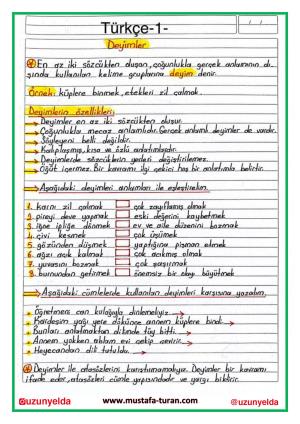 Türkçe-1-
Deyimler
En az iki sözcükten oluşan, çoğunlukla gerçek anlamının dı-
şında kullanılan kelime gruplarına deyim denir.
Örnek: küplere binmek, etekleri zil çalmak.
Deyimlerin özellikleri;
Deyimler en az iki sözcükten oluşur.
Çoğunlukla mecaz anlamlıdır. Gerçek anlamlı deyimler de vardır.
Söyleyeni belli değildir.
Kalıplaşmış, kısa ve özlü anlatımlardır.
Deyimlerde sözcüklerin yerleri değiştirilemez.
Öğüt içermez. Bir kavramı ilgi çekici hoş bir anlatımla belirtir.
Aşağıdaki deyimleri anlamları ile eşleştirelim.
1. karnı zil çalmak çok zayıflamış olmak
2. pireyi deve yapmak eski değerini kaybetmek
3. iğne ipliğe dönmek ev ve aile düzenini bozmak
4. çivi kesmek çok üşümek
5. gözünden düşmek yaptığına pişman etmek
6. ağzı açık kalmak çok acıkmış olmak
7. yuvasını bozmak çok şaşırmak
8. burnundan getirmek önemsiz bir olayı büyütmek
Aşağıdaki cümlelerde kullanılan deyimleri karşısına yazalım.
Öğretmeni can kulağıyla dinlemeliyiz.
Kardeşim yağı yere dökünce annem küplere bindi.
Bunları anlatmaktan dilimde tüy bitti.
Annem yokken ablam evi çekip çevirir.
Heyecandan dili tutuldu.
Deyimler ile atasözlerini karıştırmamalıyız. Deyimler bir kavramı
ifade eder, atasözleri cümle yapısındadır ve yargı bildirir.
@uzunyelda www.mustafa-turan.com @uzunyelda